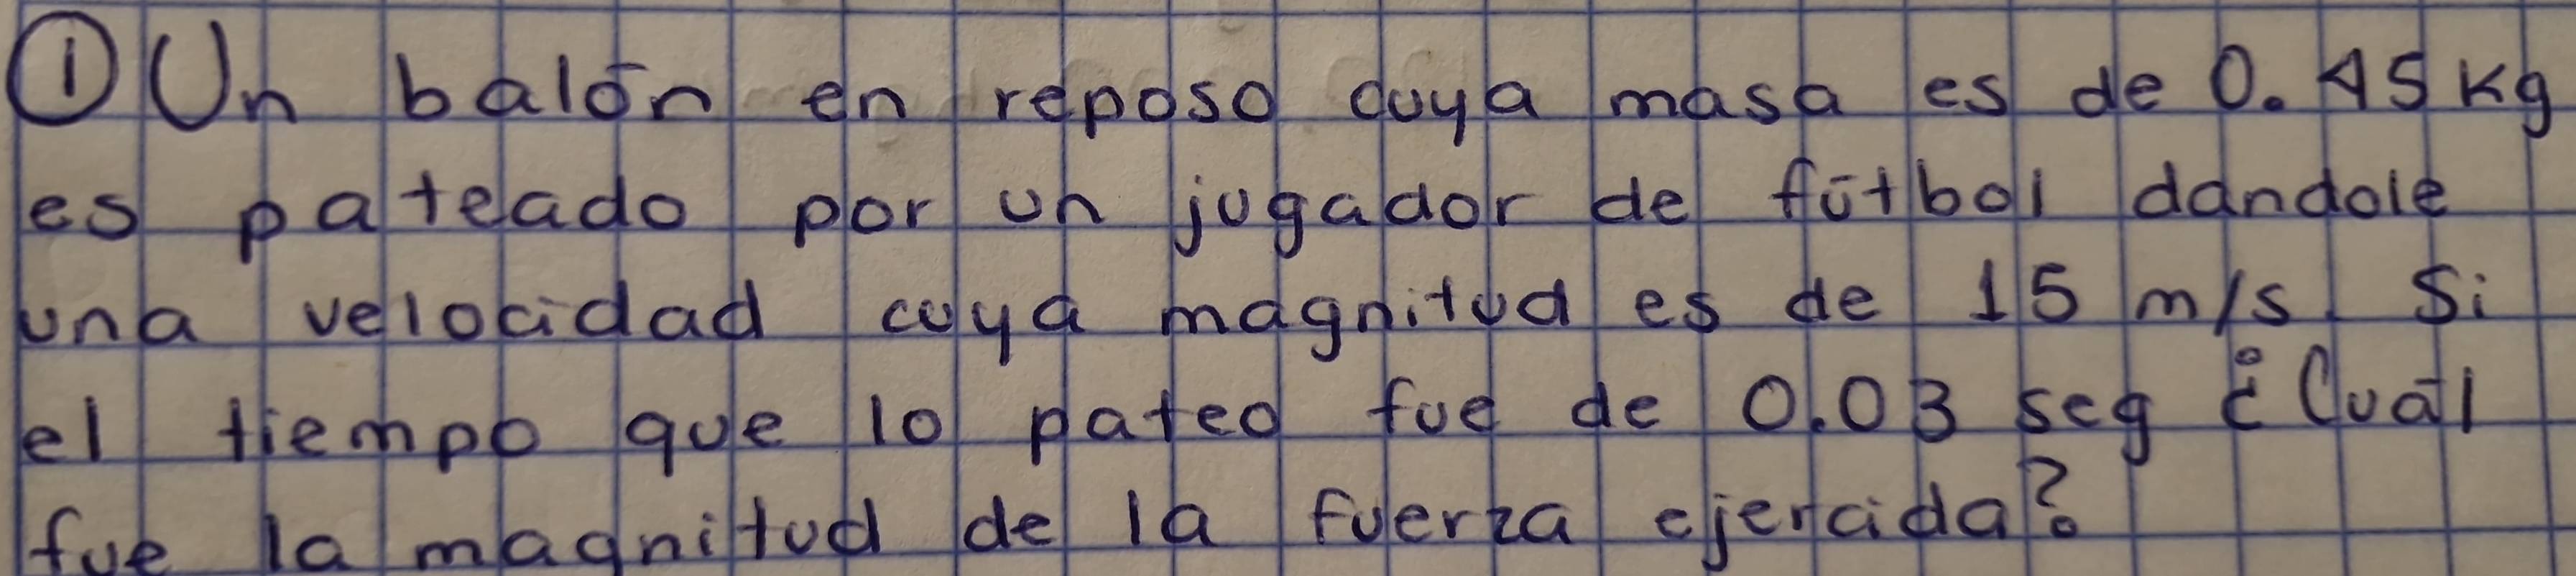 ① Un balón en reposo cuya masa es de 0.45 Kg
es pateado por un jugador de fútbol dándole
una velocidad cuya magnitud es de 15 m/s. Si
el tiempo que lo pateo fue de 0.03 seg ¿Cuál
fue la magnitud de la fuerza ejercida?